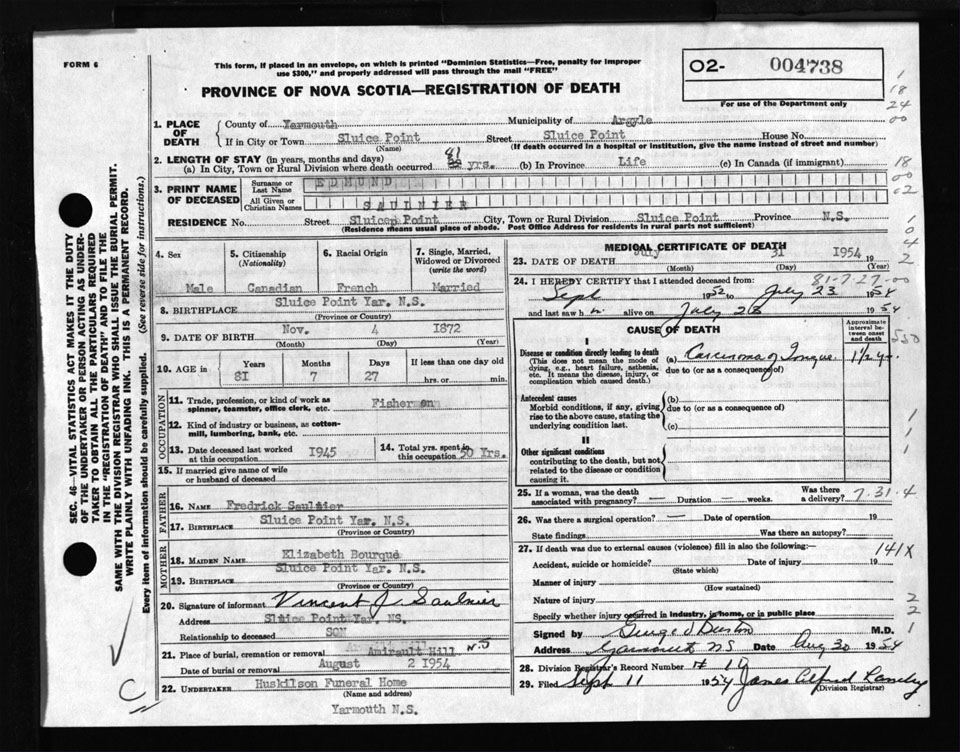 FORM 6
This form, if placed in an envelope, on which is printed "Dominion Statistics—Free, penalty for improper
use $300," and properly addressed will pass through the mail "FREE"
O2- 004738
For use of the Department only
PROVINCE OF NOVA SCOTIA—REGISTRATION OF DEATH
1. PLACE OF DEATH
County of Yarmouth Municipality of Argyle
If in City or Town Sluice Point Street Sluice Point House No.
(Name) (If death occurred in a hospital or institution, give the name instead of street and number)
2. LENGTH OF STAY (in years, months and days)
(a) In City, Town or Rural Division where death occurred 81 yrs. (b) In Province Life (c) In Canada (if immigrant)
3. PRINT NAME OF DECEASED
Surname or Last Name EDMUND
All Given or Christian Names SAULNIER
RESIDENCE No. Street Sluice Point City, Town or Rural Division Sluice Point Province N.S.
(Residence means usual place of abode. Post Office Address for residents in rural parts not sufficient)
4. Sex Male
5. Citizenship (Nationality) Canadian
6. Racial Origin French
7. Single, Married, Widowed or Divorced (write the word) Married
8. BIRTHPLACE Sluice Point Yar. N.S.
(Province or Country)
9. DATE OF BIRTH Nov. 4 1872
(Month) (Day) (Year)
10. AGE in Years 81 Months 7 Days 27 If less than one day old hrs. or min.
OCCUPATION
11. Trade, profession, or kind of work as spinner, teamster, office clerk, etc. Fisherman
12. Kind of industry or business, as cotton-mill, lumbering, bank, etc.
13. Date deceased last worked at this occupation 1945
14. Total yrs. spent in this occupation 50 Yrs.
15. If married give name of wife or husband of deceased
FATHER
16. NAME Fredrick Saulnier
17. BIRTHPLACE Sluice Point Yar. N.S.
(Province or Country)
MOTHER
18. MAIDEN NAME Elizabeth Bourque
19. BIRTHPLACE Sluice Point Yar. N.S.
(Province or Country)
20. Signature of informant Vincent J. Saulnier
Address Sluice Point Yar. NS.
Relationship to deceased SON
21. Place of burial, cremation or removal Amirault Hill N.S
Date of burial or removal August 2 1954
22. UNDERTAKER Huskilson Funeral Home
(Name and address)
Yarmouth N.S.
MEDICAL CERTIFICATE OF DEATH
23. DATE OF DEATH July 31 1954
(Month) (Day) (Year)
24. I HEREBY CERTIFY that I attended deceased from: 81-7-27-00
Sept 1952 to July 23 1954
and last saw h m alive on July 23 1954
CAUSE OF DEATH
Approximate interval between onset and death
I
Disease or condition directly leading to death
(This does not mean the mode of dying, e.g., heart failure, asthenia, etc. It means the disease, injury, or complication which caused death.)
(a) Carcinoma of Tongue 1 1/2 yr.
due to (or as a consequence of)
Antecedent causes
Morbid conditions, if any, giving rise to the above cause, stating the underlying condition last.
(b)
due to (or as a consequence of)
(c)
II
Other significant conditions
contributing to the death, but not related to the disease or condition causing it.
25. If a woman, was the death associated with pregnancy? — Duration — weeks. Was there a delivery? 7.31.4
26. Was there a surgical operation? — Date of operation 19
State findings Was there an autopsy?
27. If death was due to external causes (violence) fill in also the following:— 141X
Accident, suicide or homicide? Date of injury 19
(State which)
Manner of injury
(How sustained)
Nature of injury
Specify whether injury occurred in industry, in home, or in public place
Signed by George D Burton M.D.
Address Yarmouth NS Date Aug 30 1954
28. Division Registrar's Record Number # 19
29. Filed Sept 11 1954 James Alfred
(Division Registrar)
SEC. 46—VITAL STATISTICS ACT MAKES IT THE DUTY
OF THE UNDERTAKER OR PERSON ACTING AS UNDERTAKER
TO OBTAIN ALL THE PARTICULARS REQUIRED
IN THE "REGISTRATION OF DEATH" AND TO FILE THE
SAME WITH THE DIVISION REGISTRAR WHO SHALL ISSUE THE BURIAL PERMIT.
WRITE PLAINLY WITH UNFADING INK. THIS IS A PERMANENT RECORD.
Every item of information should be carefully supplied. (See reverse side for instructions.)
C
1
18
24
00
18
00
02
1
0
4
2
550
1
1
1
2
2
1